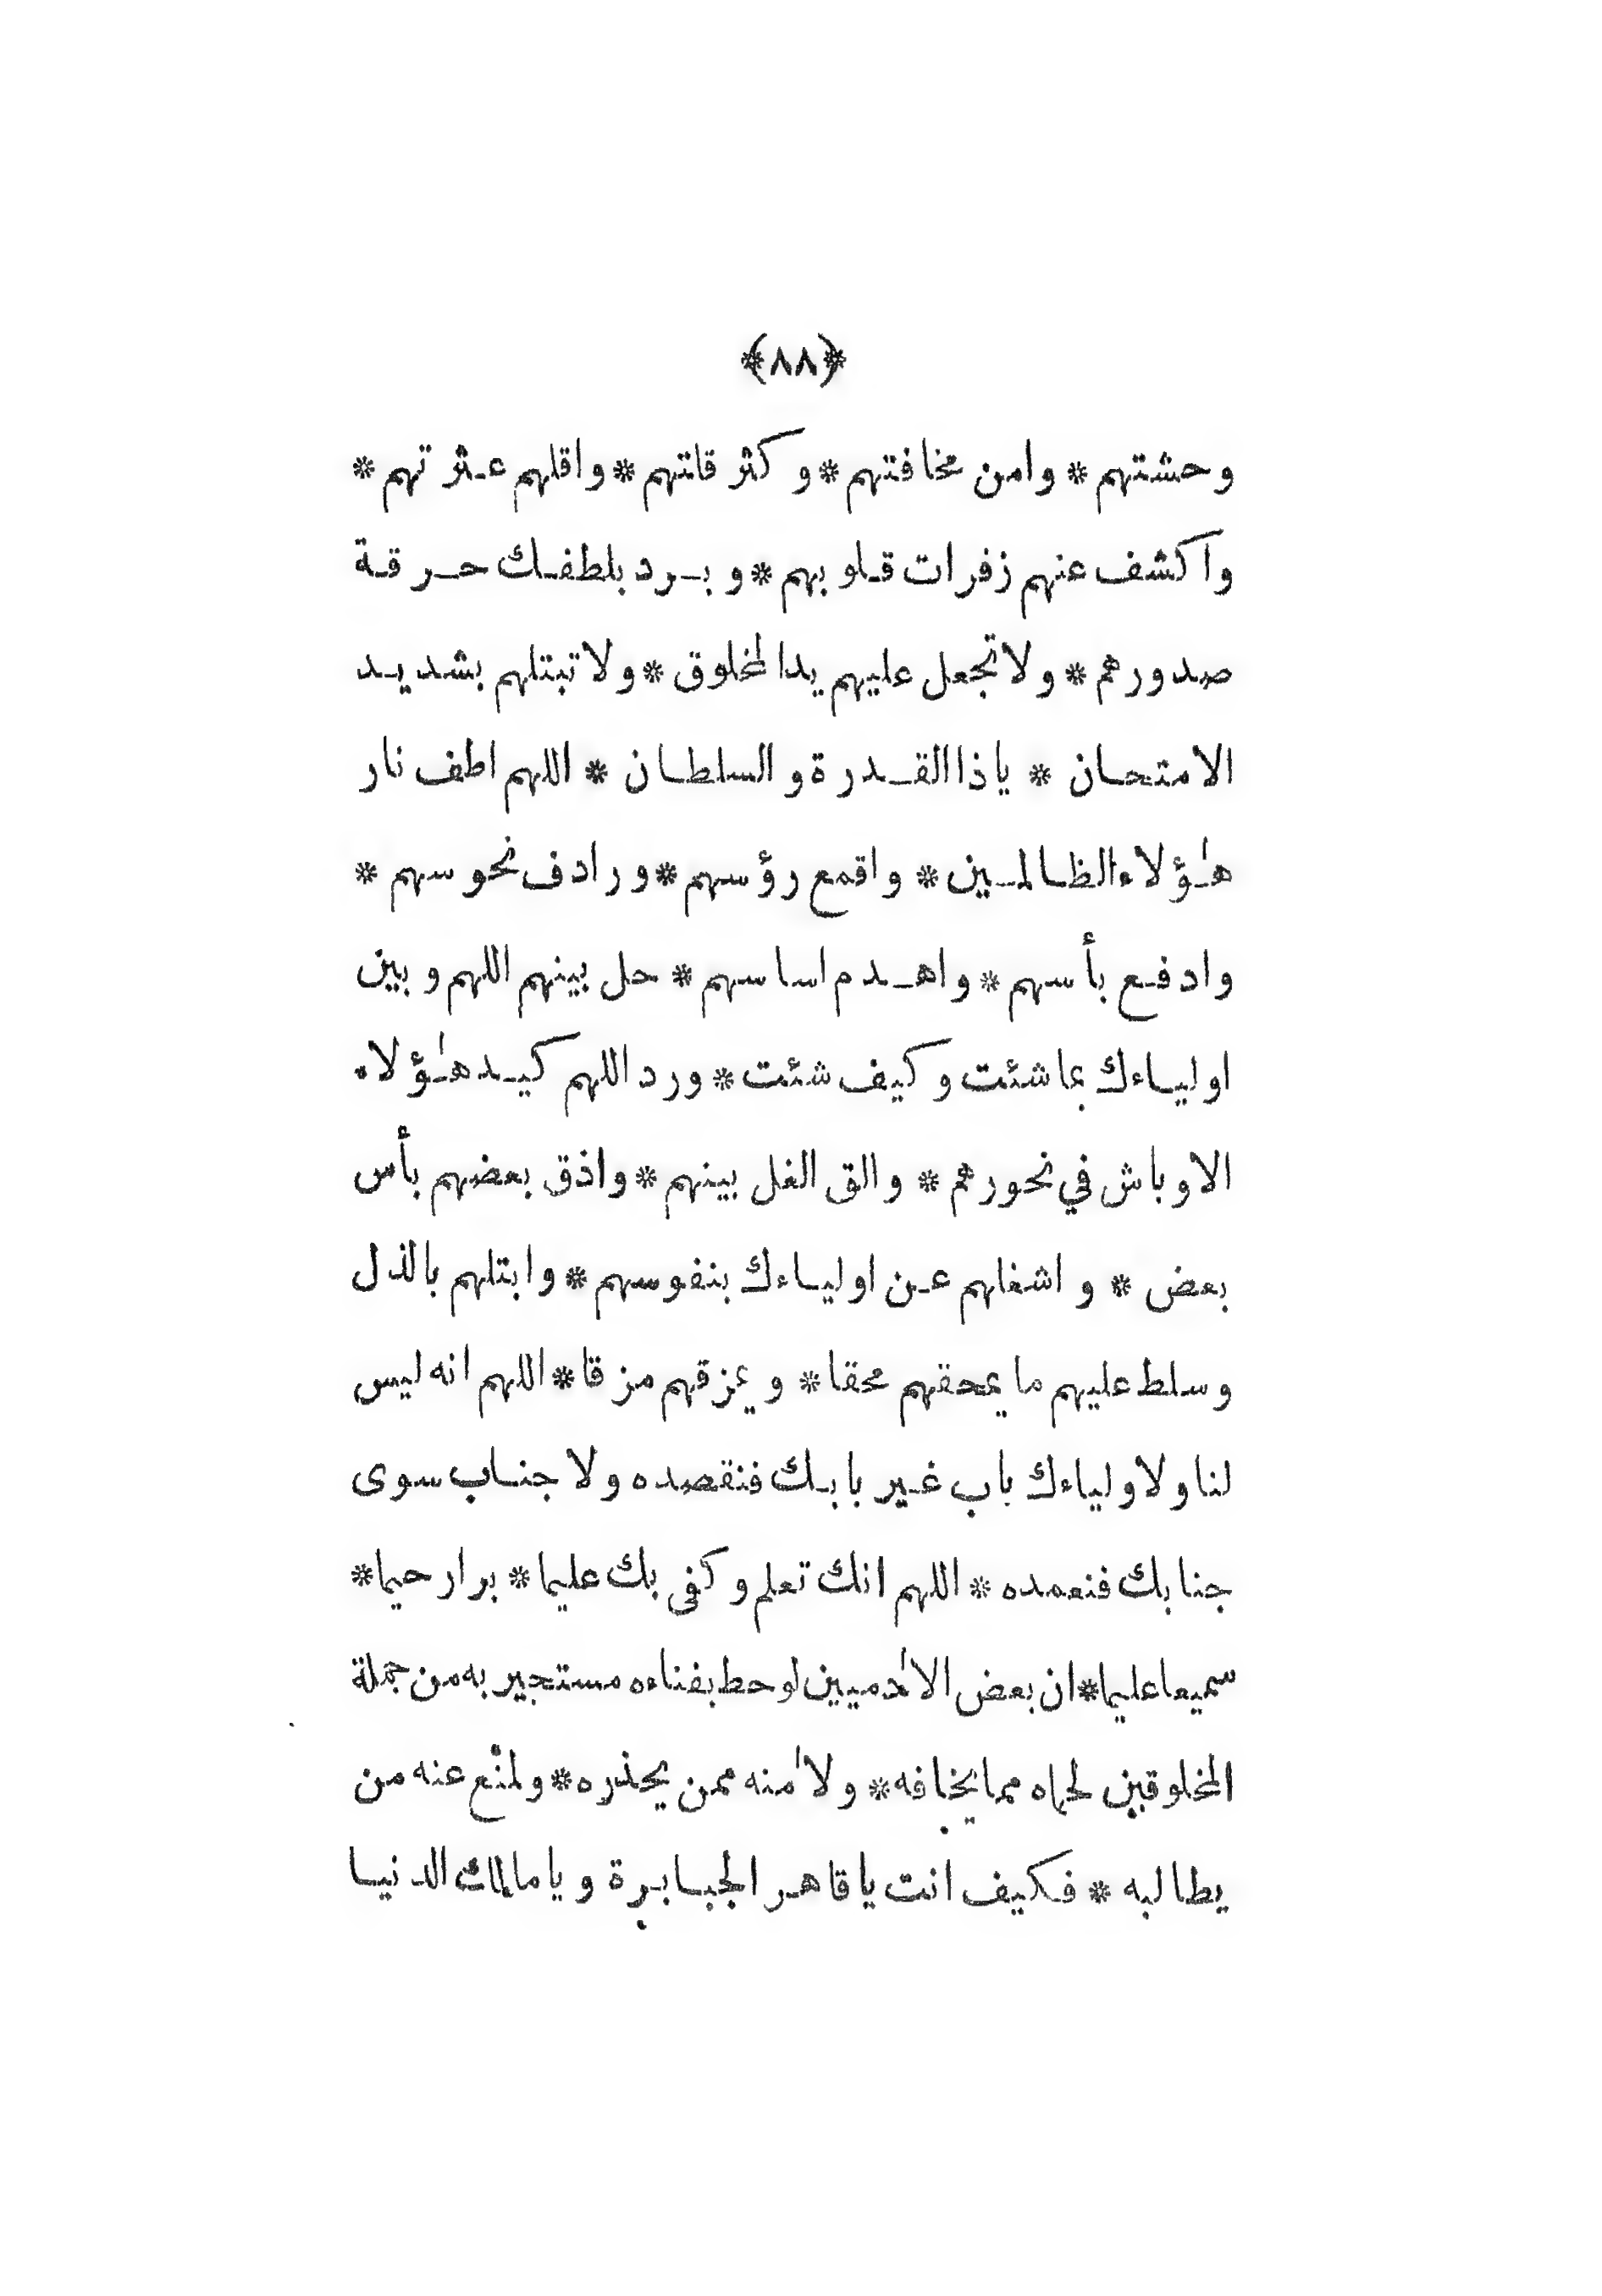 ﴿٨٨﴾
وحشتهم * وامن مخافتهم * وكثر قلتهم * واقلهم عثرتهم *
واكشف عنهم زفرات قلوبهم * وبرد بلطفك حرقة
صدورهم * ولا تجعل عليهم يدا لمخلوق * ولا تبتلهم بشديد
الامتحان * ياذا القدرة والسلطان * اللهم اطف نار
هٰؤلاء الظالمين * واقمع رؤسهم * ورادف نحوسهم *
وادفع بأسهم * واهدم اساسهم * حل بينهم اللهم وبين
اولياءك بما شئت وكيف شئت * ورد اللهم كيد هٰؤلاء
الاوباش في نحورهم * والق الغل بينهم * واذق بعضهم بأس
بعض * واشغلهم عن اولياءك بنفوسهم * وابتلهم بالذل
وسلط عليهم ما يمحقهم محقا * ويمزقهم مزقا * اللهم انه ليس
لنا ولاولياءك باب غير بابك فنقصده ولا جناب سوى
جنابك فنعمده * اللهم انك تعلم وكفى بك عليما * برا رحيما *
سميعا عليما * ان بعض الاٰدميين لو حط بفناءه مستجير به من جملة
المخلوقين لحماه مما يخافه * ولاٰمنه ممن يحذره * ولمنع عنه من
يطالبه * فكيف انت يا قاهر الجبابرة ويا مالك الدنيا